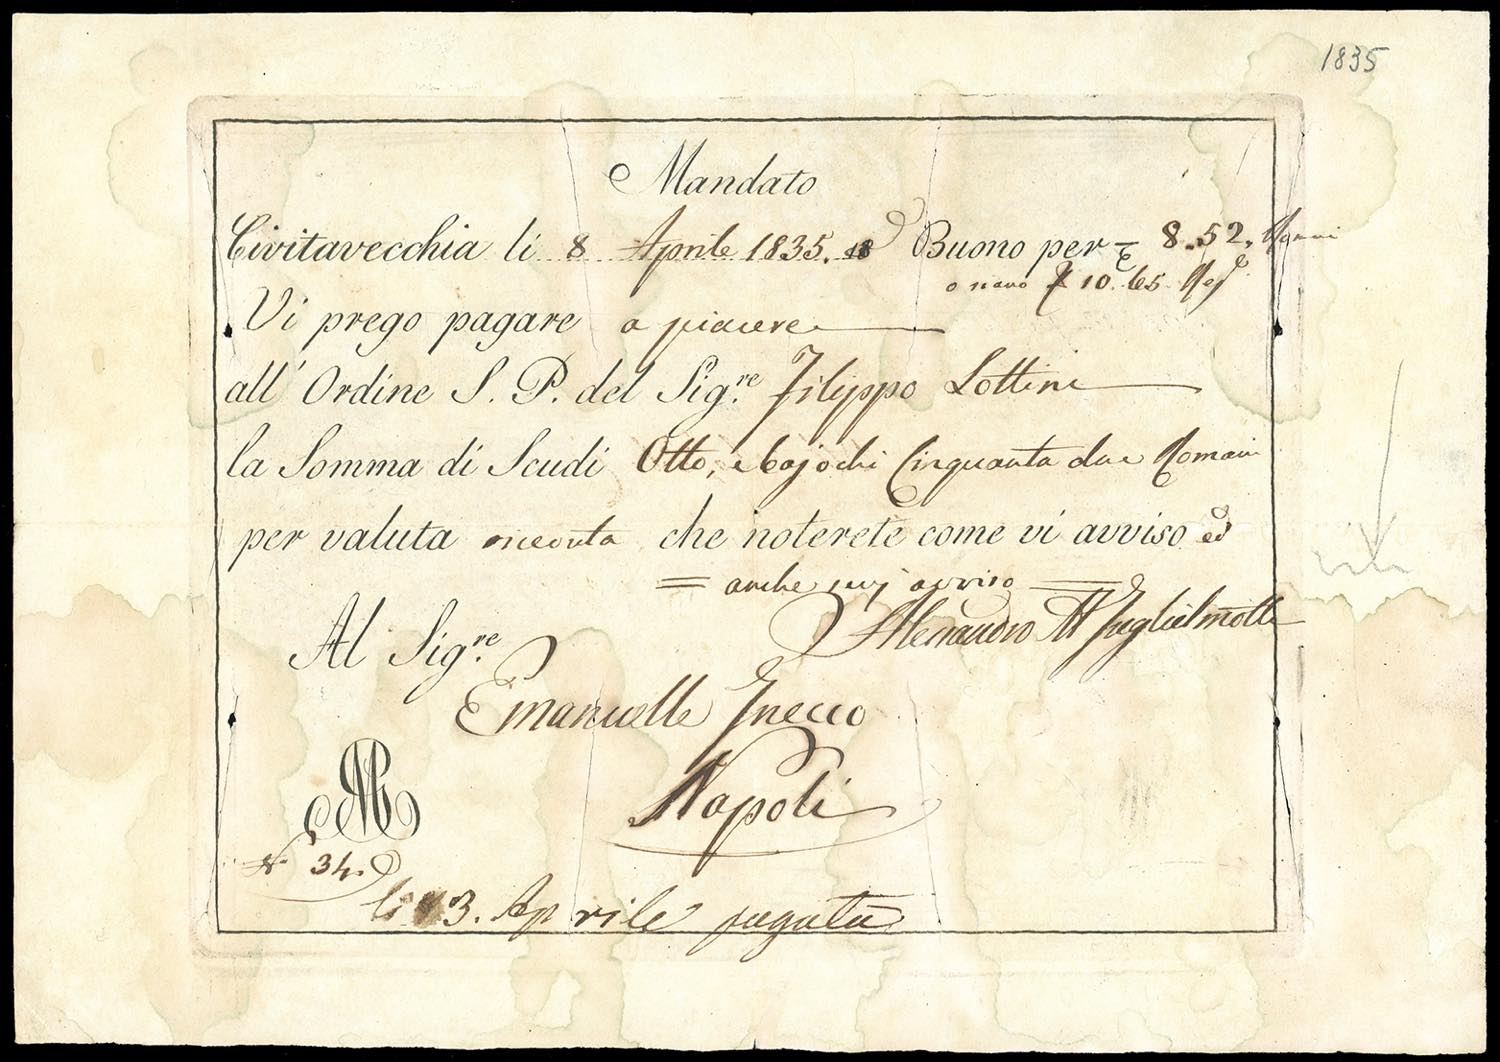 1835
Mandato
Civitavecchia li 8 Aprile 1835. Buono per 8.52.
10.65
Vi prego pagare a piacere
all' Ordine S. P. del Sig.re Filippo Lottini
la Somma di Scudi Otto, e bajochi Cinquanta due Romani
per valuta che noterete come vi avviso
anche avviso
Alessandro
Al Sig.re
Emanuelle Gnecco
Napoli
N. 34.
li 13. Aprile pagata